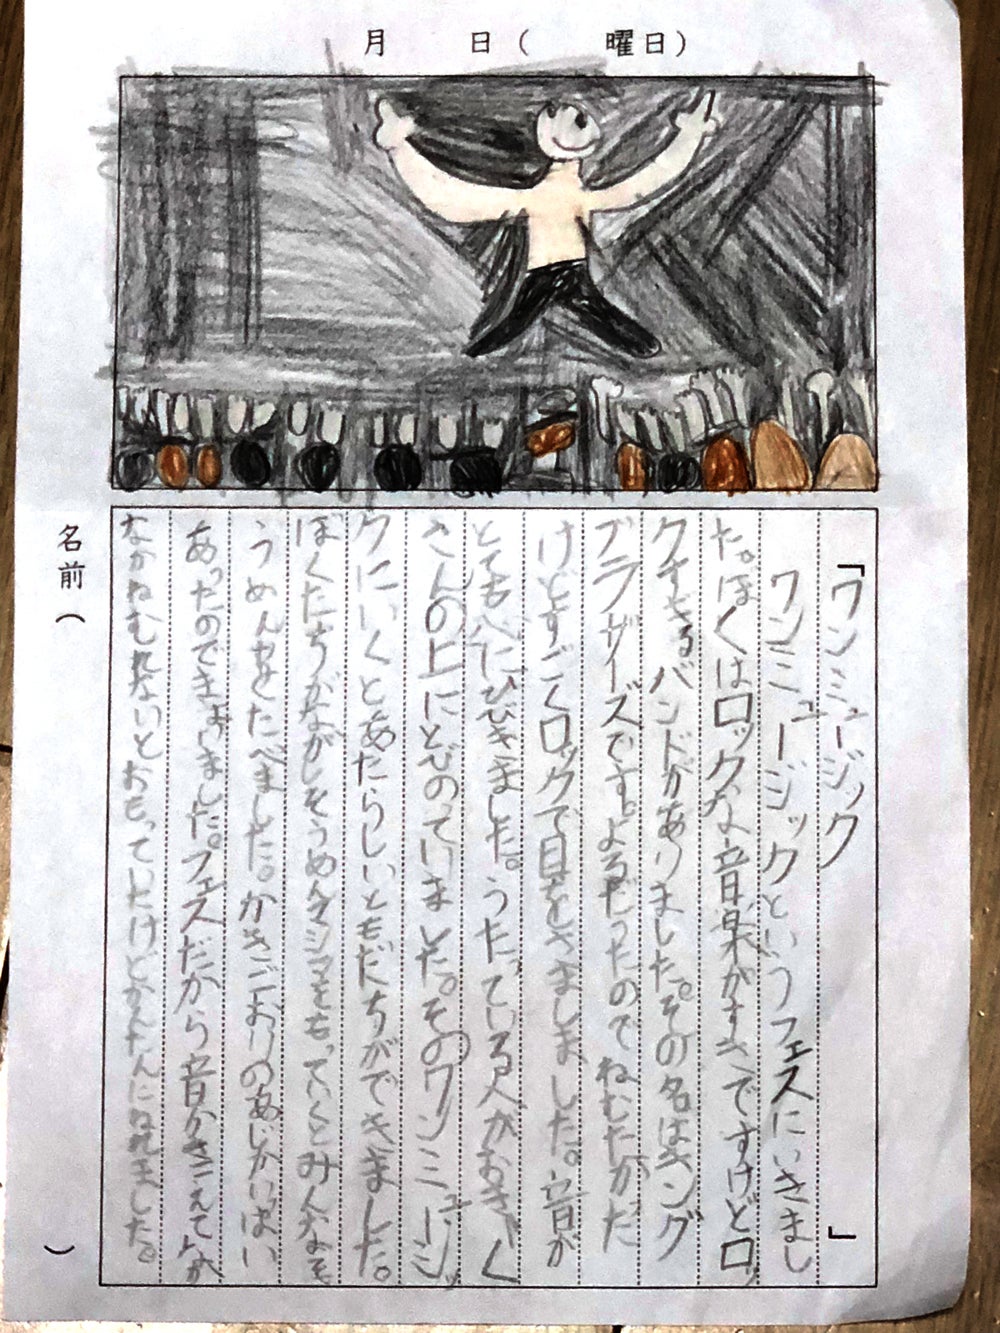 月　日（　曜日）
「ワンミュージック」
ワンミュージックというフェスにいきまし
た。ぼくはロックな音楽がすきですけどロッ
クすぎるバンドがありました。その名はキング
ブラザーズです。よるだったのでねむたかった
けどすごくロックで目をさましました。音が
とても心にひびきました。うたっている人がおきゃく
さんの上にとびのっていました。そのワンミュージッ
クにいくとあたらしいともだちができました。
ぼくたちがながしそうめんマシンをもっていくとみんなそ
うめんをたべました。かきごおりのあじがいっぱい
あったのできょいました。フェスだから音がきこえてなか
なかねむれないとおもっていたけどかんたんにねれました。
名前（　）